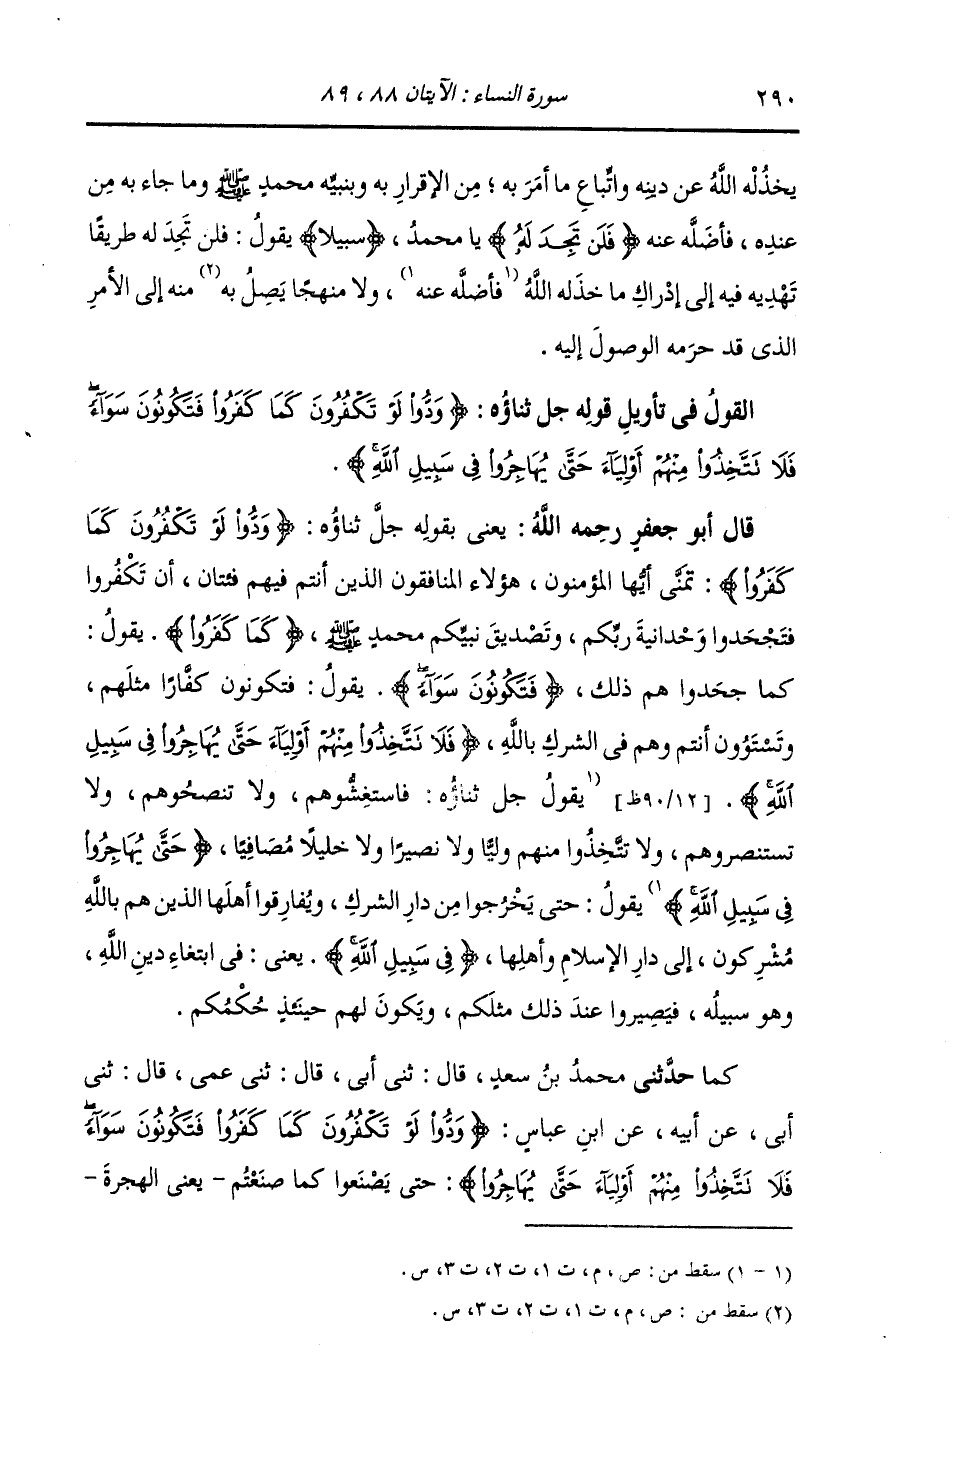 ٢٩٠ سورة النساء : الآيتان ٨٨ ، ٨٩
يخذُلْه اللَّهُ عن دينِه واتِّباعِ ما أمَرَ به ؛ مِن الإقرارِ به وبنبيِّه محمدٍ ﷺ وما جاء به مِن
عندِه ، فأضَلَّه عنه ﴿ فَلَن تَجِدَ لَهُ ﴾ يا محمدُ ، ﴿سبيلا﴾ يقولُ : فلن تَجِدَ له طريقًا
تَهْدِيه فيه إلى إدْراكِ ما خذَله اللَّهُ (١فأضلَّه عنه١) ، ولا منهجًا يَصِلُ به(٢) منه إلى الأمرِ
الذى قد حرَمه الوصولَ إليه .
القولُ فى تأويلِ قولِه جل ثناؤُه : ﴿ وَدُّوا۟ لَوْ تَكْفُرُونَ كَمَا كَفَرُوا۟ فَتَكُونُونَ سَوَآءً ۖ
فَلَا نَتَّخِذُوا۟ مِنْهُمْ أَوْلِيَآءَ حَتَّىٰ يُهَاجِرُوا۟ فِى سَبِيلِ ٱللَّهِ ۚ ﴾ .
قال أبو جعفرٍ رحِمه اللَّهُ : يعنى بقولِه جلَّ ثناؤُه : ﴿ وَدُّوا۟ لَوْ تَكْفُرُونَ كَمَا
كَفَرُوا۟ ﴾ : تمَنَّى أيُّها المؤمنون ، هؤلاء المنافقون الذين أنتم فيهم فئتان ، أن تَكْفُروا
فتَجْحَدوا وَحْدانيةَ ربِّكم ، وتَصْديقَ نبيِّكم محمدٍ ﷺ ، ﴿ كَمَا كَفَرُوا۟ ﴾ . يقولُ :
كما جحَدوا هم ذلك ، ﴿ فَتَكُونُونَ سَوَآءً ۖ ﴾ . يقولُ : فتكونون كفَّارًا مثلَهم ،
وتَسْتَوُون أنتم وهم فى الشركِ باللَّهِ ، ﴿ فَلَا نَتَّخِذُوا۟ مِنْهُمْ أَوْلِيَآءَ حَتَّىٰ يُهَاجِرُوا۟ فِى سَبِيلِ
ٱللَّهِ ۚ ﴾ . [٩٠/١٢ظ] (١يقولُ جل ثناؤُه : فاستغِشُّوهم ، ولا تنصحُوهم ، ولا
تستنصروهم ، ولا تتَّخِذُوا منهم وليًّا ولا نصيرًا ولا خليلًا مُصَافِيًا ، ﴿ حَتَّىٰ يُهَاجِرُوا۟
فِى سَبِيلِ ٱللَّهِ ۚ ﴾١) يقولُ : حتى يَخْرُجوا مِن دارِ الشركِ ، ويُفارِقوا أهلَها الذين هم باللَّهِ
مُشْرِكون ، إلى دارِ الإسلامِ وأهلِها ، ﴿ فِى سَبِيلِ ٱللَّهِ ۚ ﴾ . يعنى : فى ابتغاءِ دينِ اللَّهِ ،
وهو سبيلُه ، فيَصِيروا عندَ ذلك مثلَكم ، ويَكونَ لهم حينَئذٍ حُكْمُكم .
كما حدَّثنى محمدُ بنُ سعدٍ ، قال : ثنى أبى ، قال : ثنى عمى ، قال : ثنى
أبى ، عن أبيه ، عن ابنِ عباسٍ : ﴿ وَدُّوا۟ لَوْ تَكْفُرُونَ كَمَا كَفَرُوا۟ فَتَكُونُونَ سَوَآءً ۖ
فَلَا نَتَّخِذُوا۟ مِنْهُمْ أَوْلِيَآءَ حَتَّىٰ يُهَاجِرُوا۟ ﴾ : حتى يَصْنَعوا كما صنَعْتُم – يعنى الهجرةَ –
(١ – ١) سقط من : ص ، م ، ت ١، ت ٢، ت ٣، س .
(٢) سقط من : ص ، م ، ت ١، ت ٢، ت ٣، س .